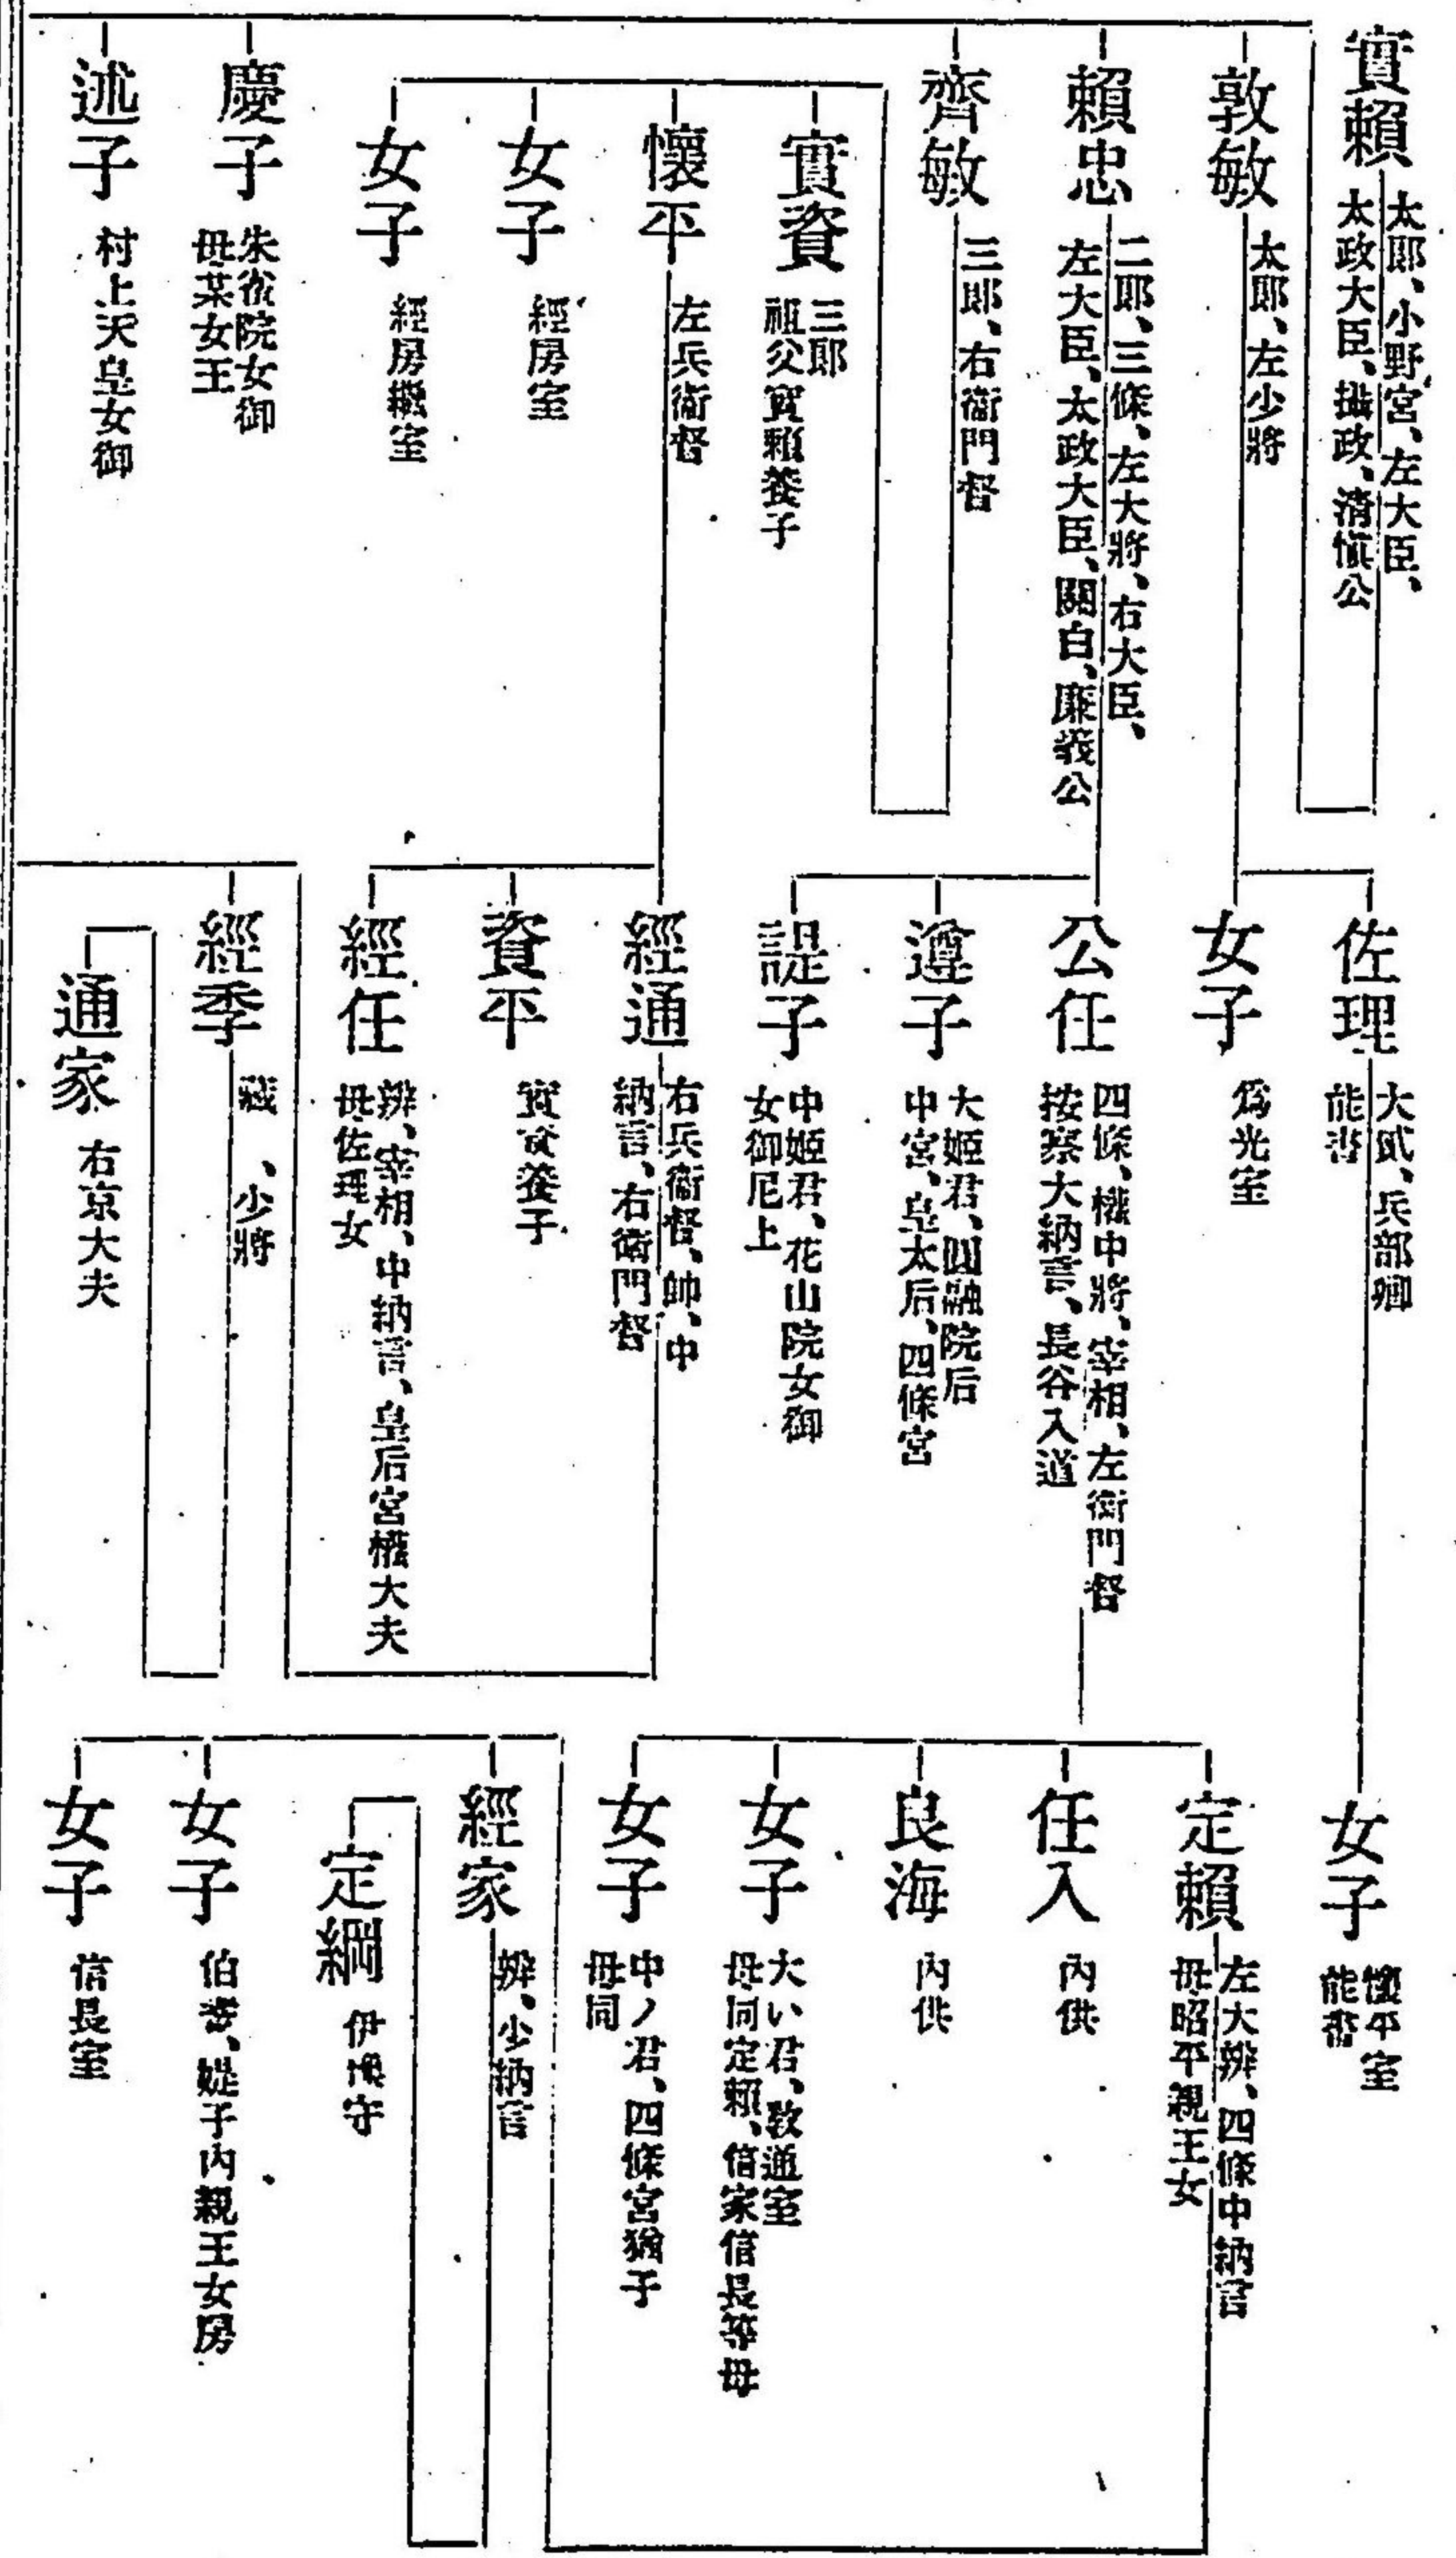 實賴
太郎、小野宮、左大臣、
太政大臣、攝政、淸愼公
敦敏
太郎、左少將
賴忠
二郎、三條、左大將、右大臣、
左大臣、太政大臣、關白、廉義公
齊敏
三郎、右衞門督
實資
三郎
祖父實賴養子
懷平
左兵衞督
女子
經房室
女子
經房繼室
慶子
朱雀院女御
母某女王
述子
村上天皇女御
佐理
大貳、兵部卿
能書
女子
爲光室
公任
四條、權中將、宰相、左衞門督
按察大納言、長谷入道
遵子
大姬君、圓融院后
中宮、皇太后、四條宮
諟子
中姬君、花山院女御
女御尼上
經通
右兵衞督、帥、中
納言、右衞門督
資平
實資養子
經任
辨、宰相、中納言、皇后宮權大夫
母佐理女
經季
藏 、少將
通家
右京大夫
女子
懷平室
能書
定賴
左大辨、四條中納言
母昭平親王女
任入
內供
良海
內供
女子
大い君、敎通室
母同定賴、信家信長等母
女子
中ノ君、四條宮猶子
母同
經家
辨、少納言
定綱
伊豫守
女子
伯耆、媞子內親王女房
女子
信長室